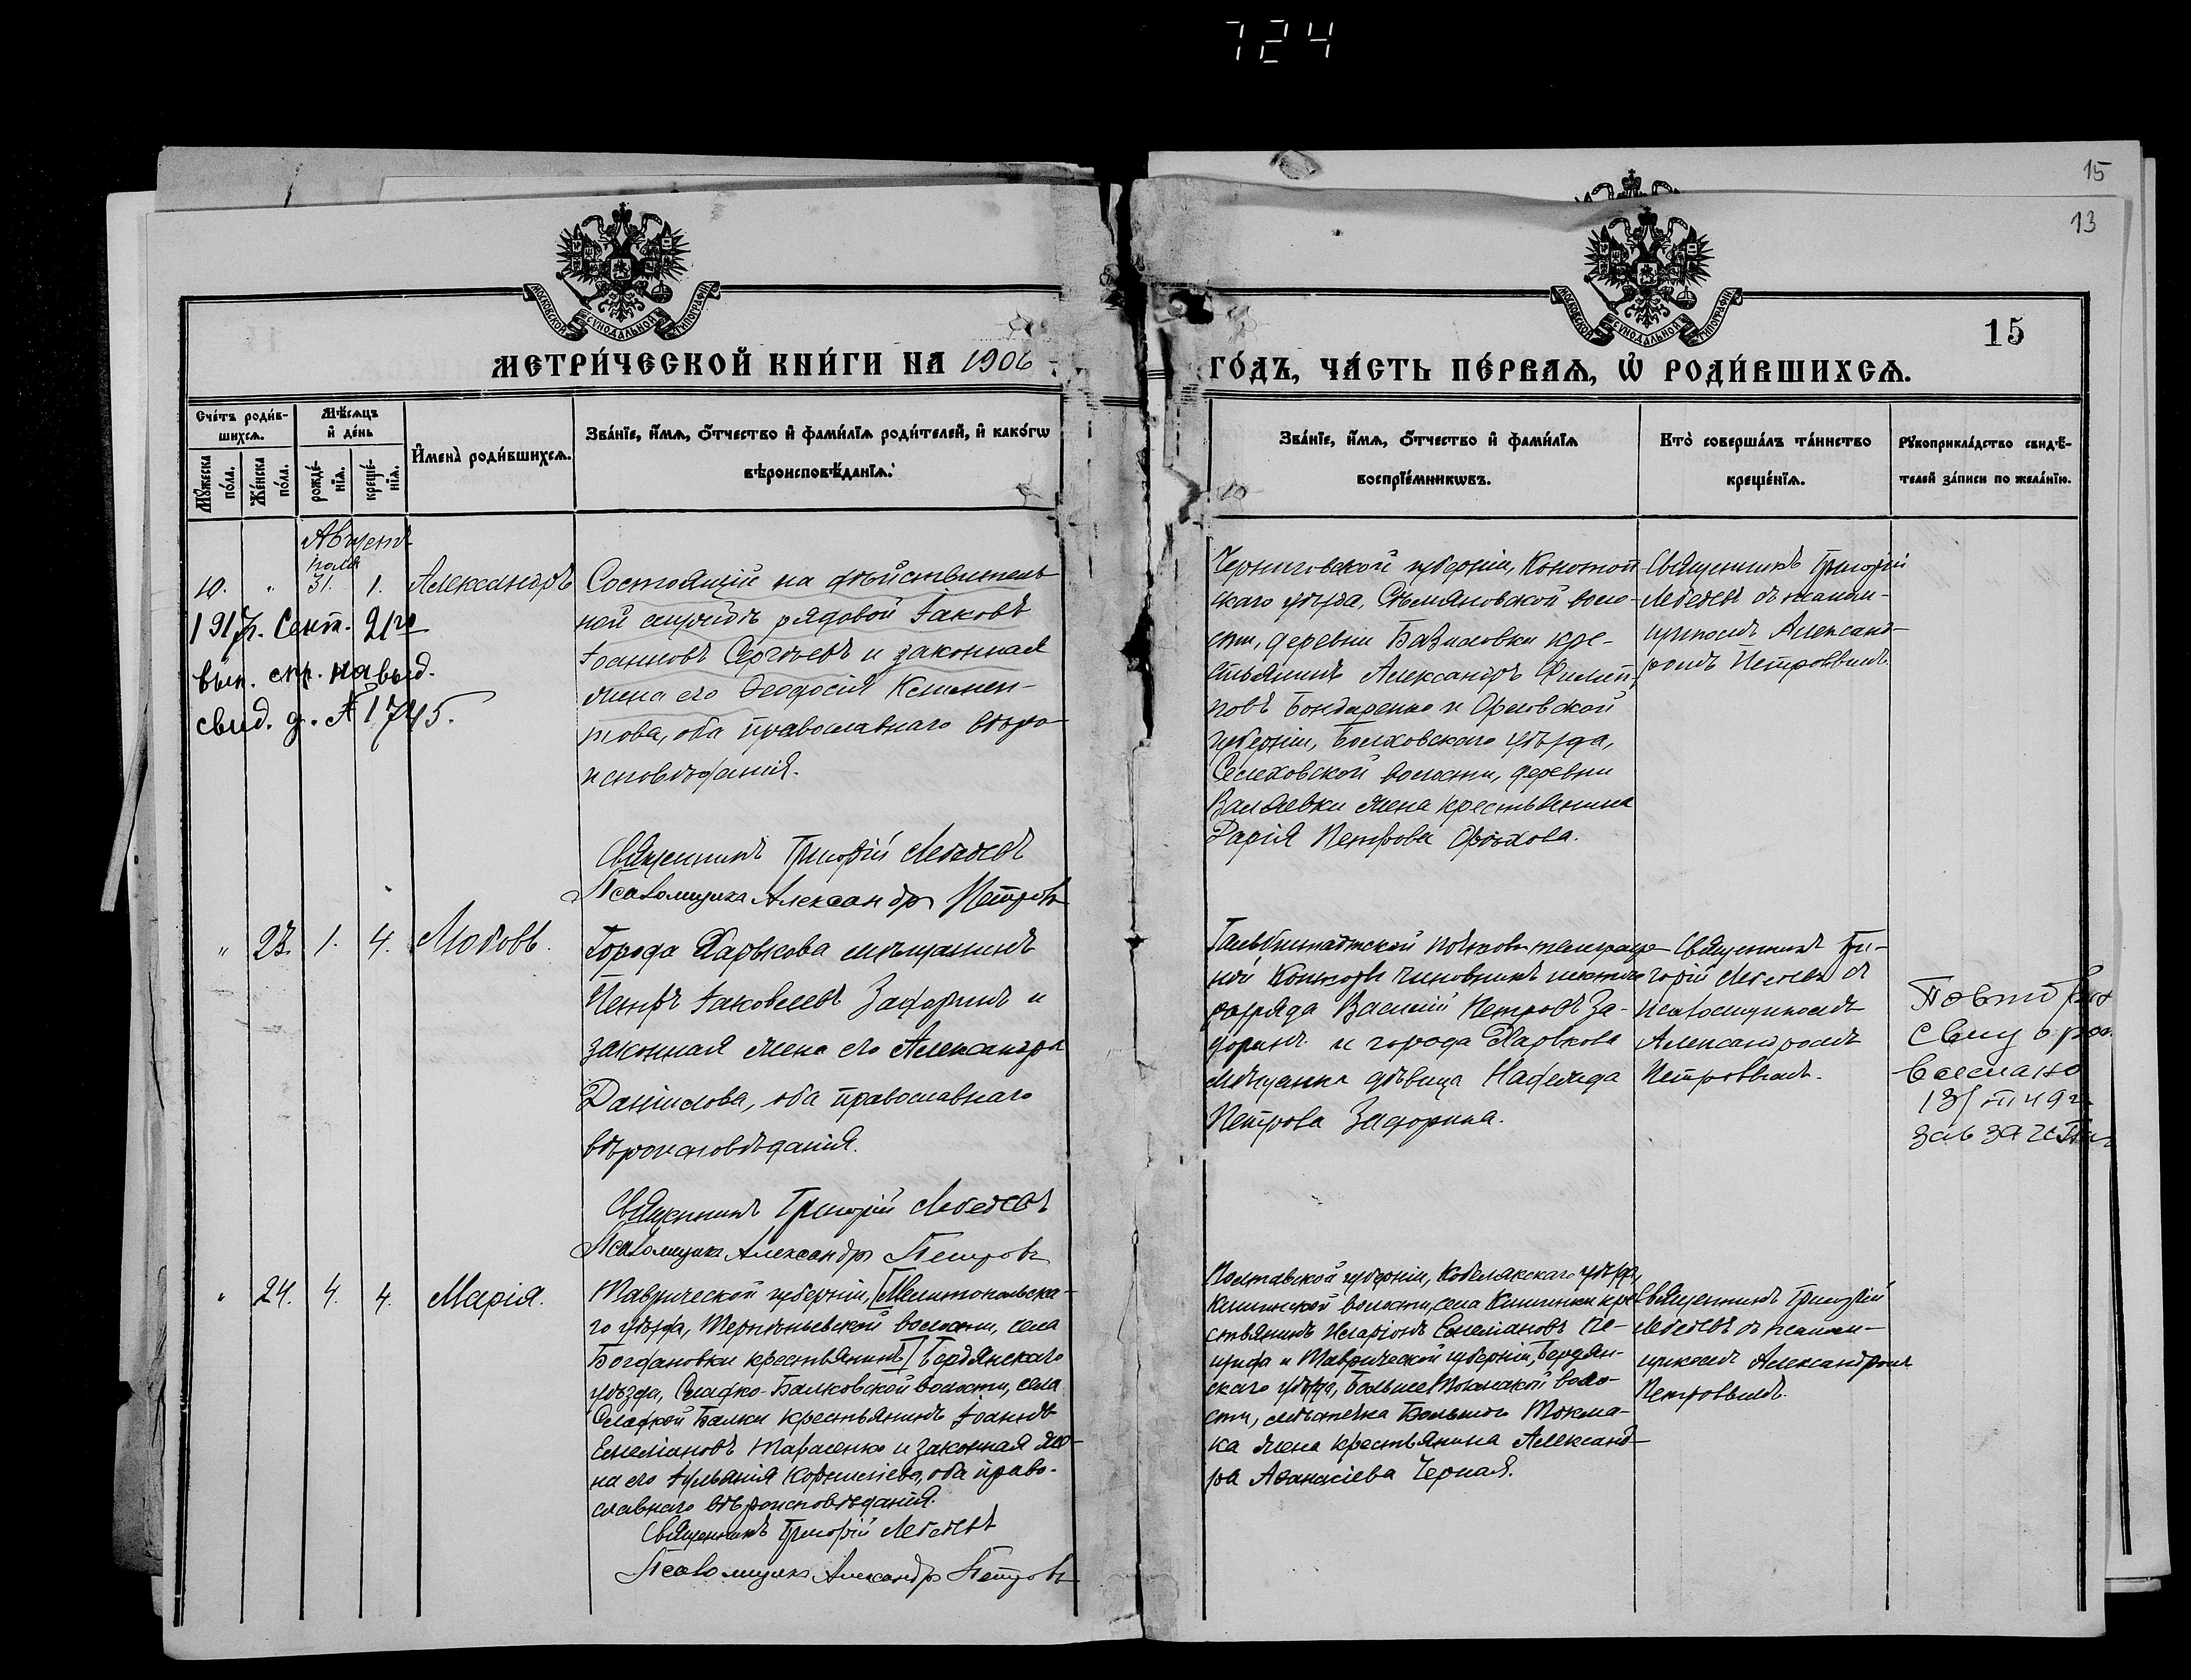 724
15
13
МОСКОВСКОЙ СѴНОДАЛЬНОЙ ТИПОГРАФІИ
МОСКОВСКОЙ СѴНОДАЛЬНОЙ ТИПОГРАФІИ
15
МЕТРИ́ЧЕСКОЙ КНИ́ГИ НА 1906
ГО́ДЪ, ЧА́СТЬ ПЕ́РВАѦ, Ѽ РОДИ́ВШИХСѦ.
Сче́тъ роди́в-
шихсѧ.
Мѣ́сѧцъ
и҆ де́нь
Мꙋ́жеска по́ла.
Же́нска по́ла.
рожде́-нїѧ.
креще́-нїѧ.
И҆мена̀ роди́вшихсѧ.
Зва́нїе, и҆́мѧ, ѻ҆́тчество и҆ фами́лїѧ роди́телей, и҆ како́гѡ
вѣроисповѣ́данїѧ.
Зва́нїе, и҆́мѧ, ѻ҆́тчество и҆ фами́лїѧ
воспрїе́мникѡвъ.
Кто̀ соверша́лъ та́инство
креще́нїѧ.
Рꙋкоприкла́дство свидѣ́-
телей за́писи по жела́нїю.
Августъ
Іюля
10. " 31. 1. Александръ
1917г. Сент. 21го
вып. спр. на выд.
свид. д. № 1745.
Состоящій на дѣйствитель
ной службѣ рядовой Іаковъ
Іоанновъ Сергѣевъ и законная
жена его Ѳеодосія Климен-
това, оба православнаго вѣро-
исповѣданія.
Священникъ Григорій Лебедевъ
Псаломщикъ Александръ Петровъ
Черниговской губерніи, Конотоп-
скаго уѣзда, воло-
сти, деревни кре-
стьянинъ Александръ Филип-
повъ Бондаренко и Орловской
губерніи, Болховскаго уѣзда,
Селеховской волости, деревни
жена крестьянина
Дарія Петрова
Священникъ Григорій
Лебедевъ съ псалом-
щикомъ Александ-
ромъ Петровымъ.
" 23. 1. 4. Любовь.
Города Харькова мѣщанинъ
Петръ Іаковлевъ Задоринъ и
законная жена его Александра
Даніилова, оба православнаго
вѣроисповѣданія.
Священникъ Григорій Лебедевъ
Псаломщикъ Александръ Петровъ
Гальбштадтской почтово-телеграф-
ной Конторы чиновникъ шестого
разряда Василій Петровъ За-
доринъ и города Харькова
мѣщанка дѣвица Надежда
Петрова Задорина.
Священникъ Гри-
горій Лебедевъ съ
псаломщикомъ
Александромъ
Петровымъ.
Повторно
выслано
49г.
" 24. 4. 4. Марія.
Таврической губерніи, [Мелитопольска-
го уѣзда, волости, села
Богдановки крестьянинъ] Бердянскаго
уѣзда, Сладко-Балковской волости, села
Сладкой Балки крестьянинъ Іоаннъ
Емеліановъ Тарасенко и законная же-
на его Іуліанія Корниліева, оба право-
славнаго вѣроисповѣданія.
Священникъ Григорій Лебедевъ
Псаломщикъ Александръ Петровъ
Полтавской губерніи, Кобелякскаго уѣзда,
Кишинской волости, села Кишинки кре-
стьянинъ Иларіонъ Емеліановъ
и Таврической губерніи, Бердян-
скаго уѣзда, Больше Токмакской воло-
сти, мѣстечка Большого Токма-
ка жена крестьянина Александ-
ра Аѳанасіева Черная.
Священникъ Григорій
Лебедевъ съ псалом-
щикомъ Александромъ
Петровымъ.